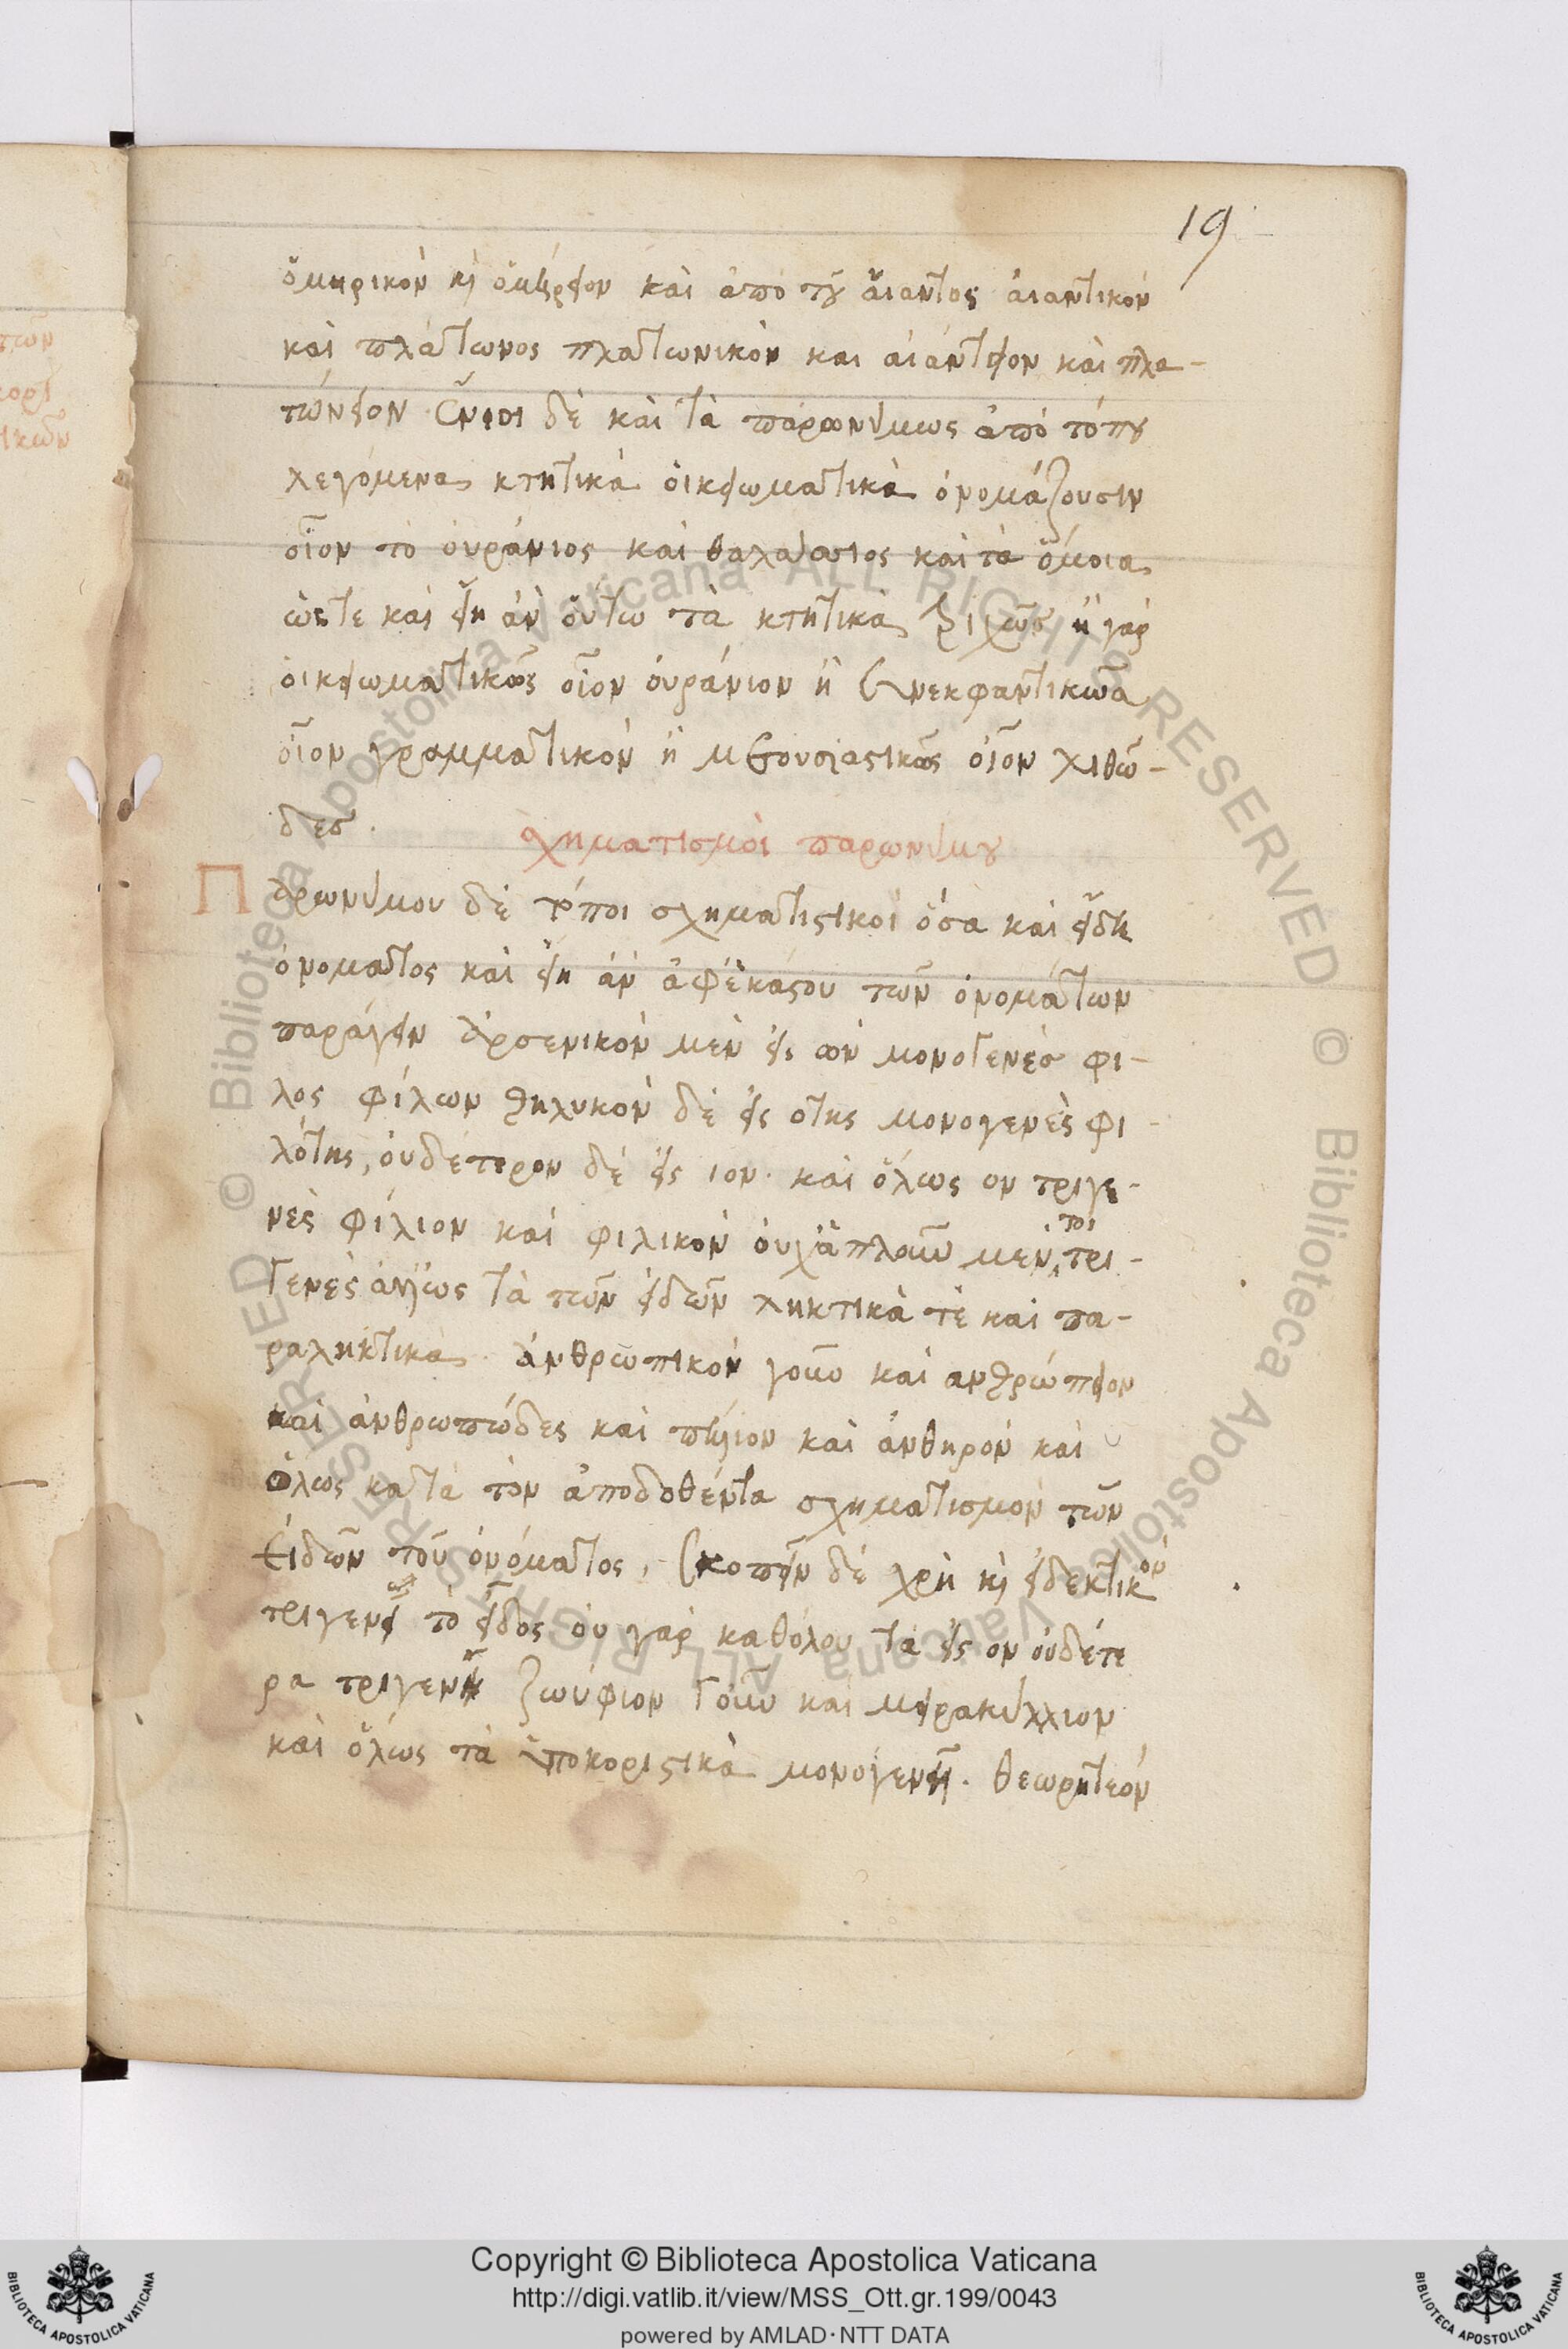 19
ὁμηρικὸν κὶ ὁμήρειον καὶ ἀπὸ τοῦ αἴαντος αἰαντικόν
καὶ πλάτωνος πλατωνικὸν και αἰάντειον καὶ πλα-
τώνειον. ἔνιοι δὲ καὶ τὰ παρωνύμως ἀπὸ τόπου
λεγόμενα κτητικὰ οἰκειωματικὰ ὀνομάζουσιν
οἷον τὸ οὐράνιος καὶ θαλάσσιος καὶ τὰ ὅμοια
ὥστε καὶ εἴη ἂν οὕτω τὰ κτητικὰ τριχῶς ἢ γὰρ
οἰκειωματικῶς οἷον οὐράνιον ἢ συνεκφαντικῶς
οἷον γραμματικὸν ἢ μετουσιαστικῶς οἷον λιθῶ-
δες.
σχηματισμοὶ παρωνύμου
Παρωνύμου δὲ τύποι σχηματιστικοὶ ὅσα καὶ εἴδη
ὀνοματος καὶ εἴη ἂν ἀφ' ἑκάστου τῶν ὀνομάτων
παράγειν ἀρσενικὸν μὲν εἰς ων μονογενὲς φι-
λος φίλων θηλυκὸν δὲ εἰς οτης μονογενὲς φι-
λότης, οὐδέτερον δὲ εἰς ιον. καὶ ὅλως ον τριγε-
νὲς φίλιον καὶ φιλικὸν οὐχ ἁπλοῦν μὲν τοι τρι-
γενὲς ἀλλ' ὡς τὰ τῶν εἰδῶν ληκτικὰ τὲ καὶ πα-
ραληκτικά. ἀνθρωπικὸν γοῦν καὶ ανθρώπειον
καὶ ἀνθρωπῶδες καὶ πήλιον καὶ ἀνθηρὸν καὶ
ὅλως κατὰ τὸν ἀποδοθέντα σχηματισμὸν τῶν
εἰδῶν τοῦ ὀνόματος. σκοπεῖν δὲ χρὴ κὶ εἰ δεκτικὸν
τριγενείας τὸ εἶδος οὐ γὰρ καθόλου τὰ εἰς ον οὐδέτε
ρα τριγενῆ ζωύφιον γοῦν καὶ μειρακύλλιον
καὶ ὅλως τὰ ὑποκοριστικὰ μονογενῆ. θεωρητεόν
πῶν
κορι
ικῶν
Copyright © Biblioteca Apostolica Vaticana
http://digi.vatlib.it/view/MSS_Ott.gr.199/0043
powered by AMLAD·NTT DATA
BIBLIOTECA APOSTOLICA VATICANA
BIBLIOTECA APOSTOLICA VATICANA
© Biblioteca Apostolica Vaticana ALL RIGHTS RESERVED
© Biblioteca Apostolica Vaticana ALL RIGHTS RESERVED